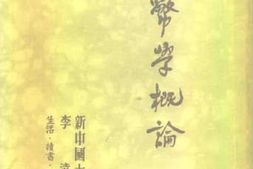 幣學概論
新中國大
李
生活·讀書·